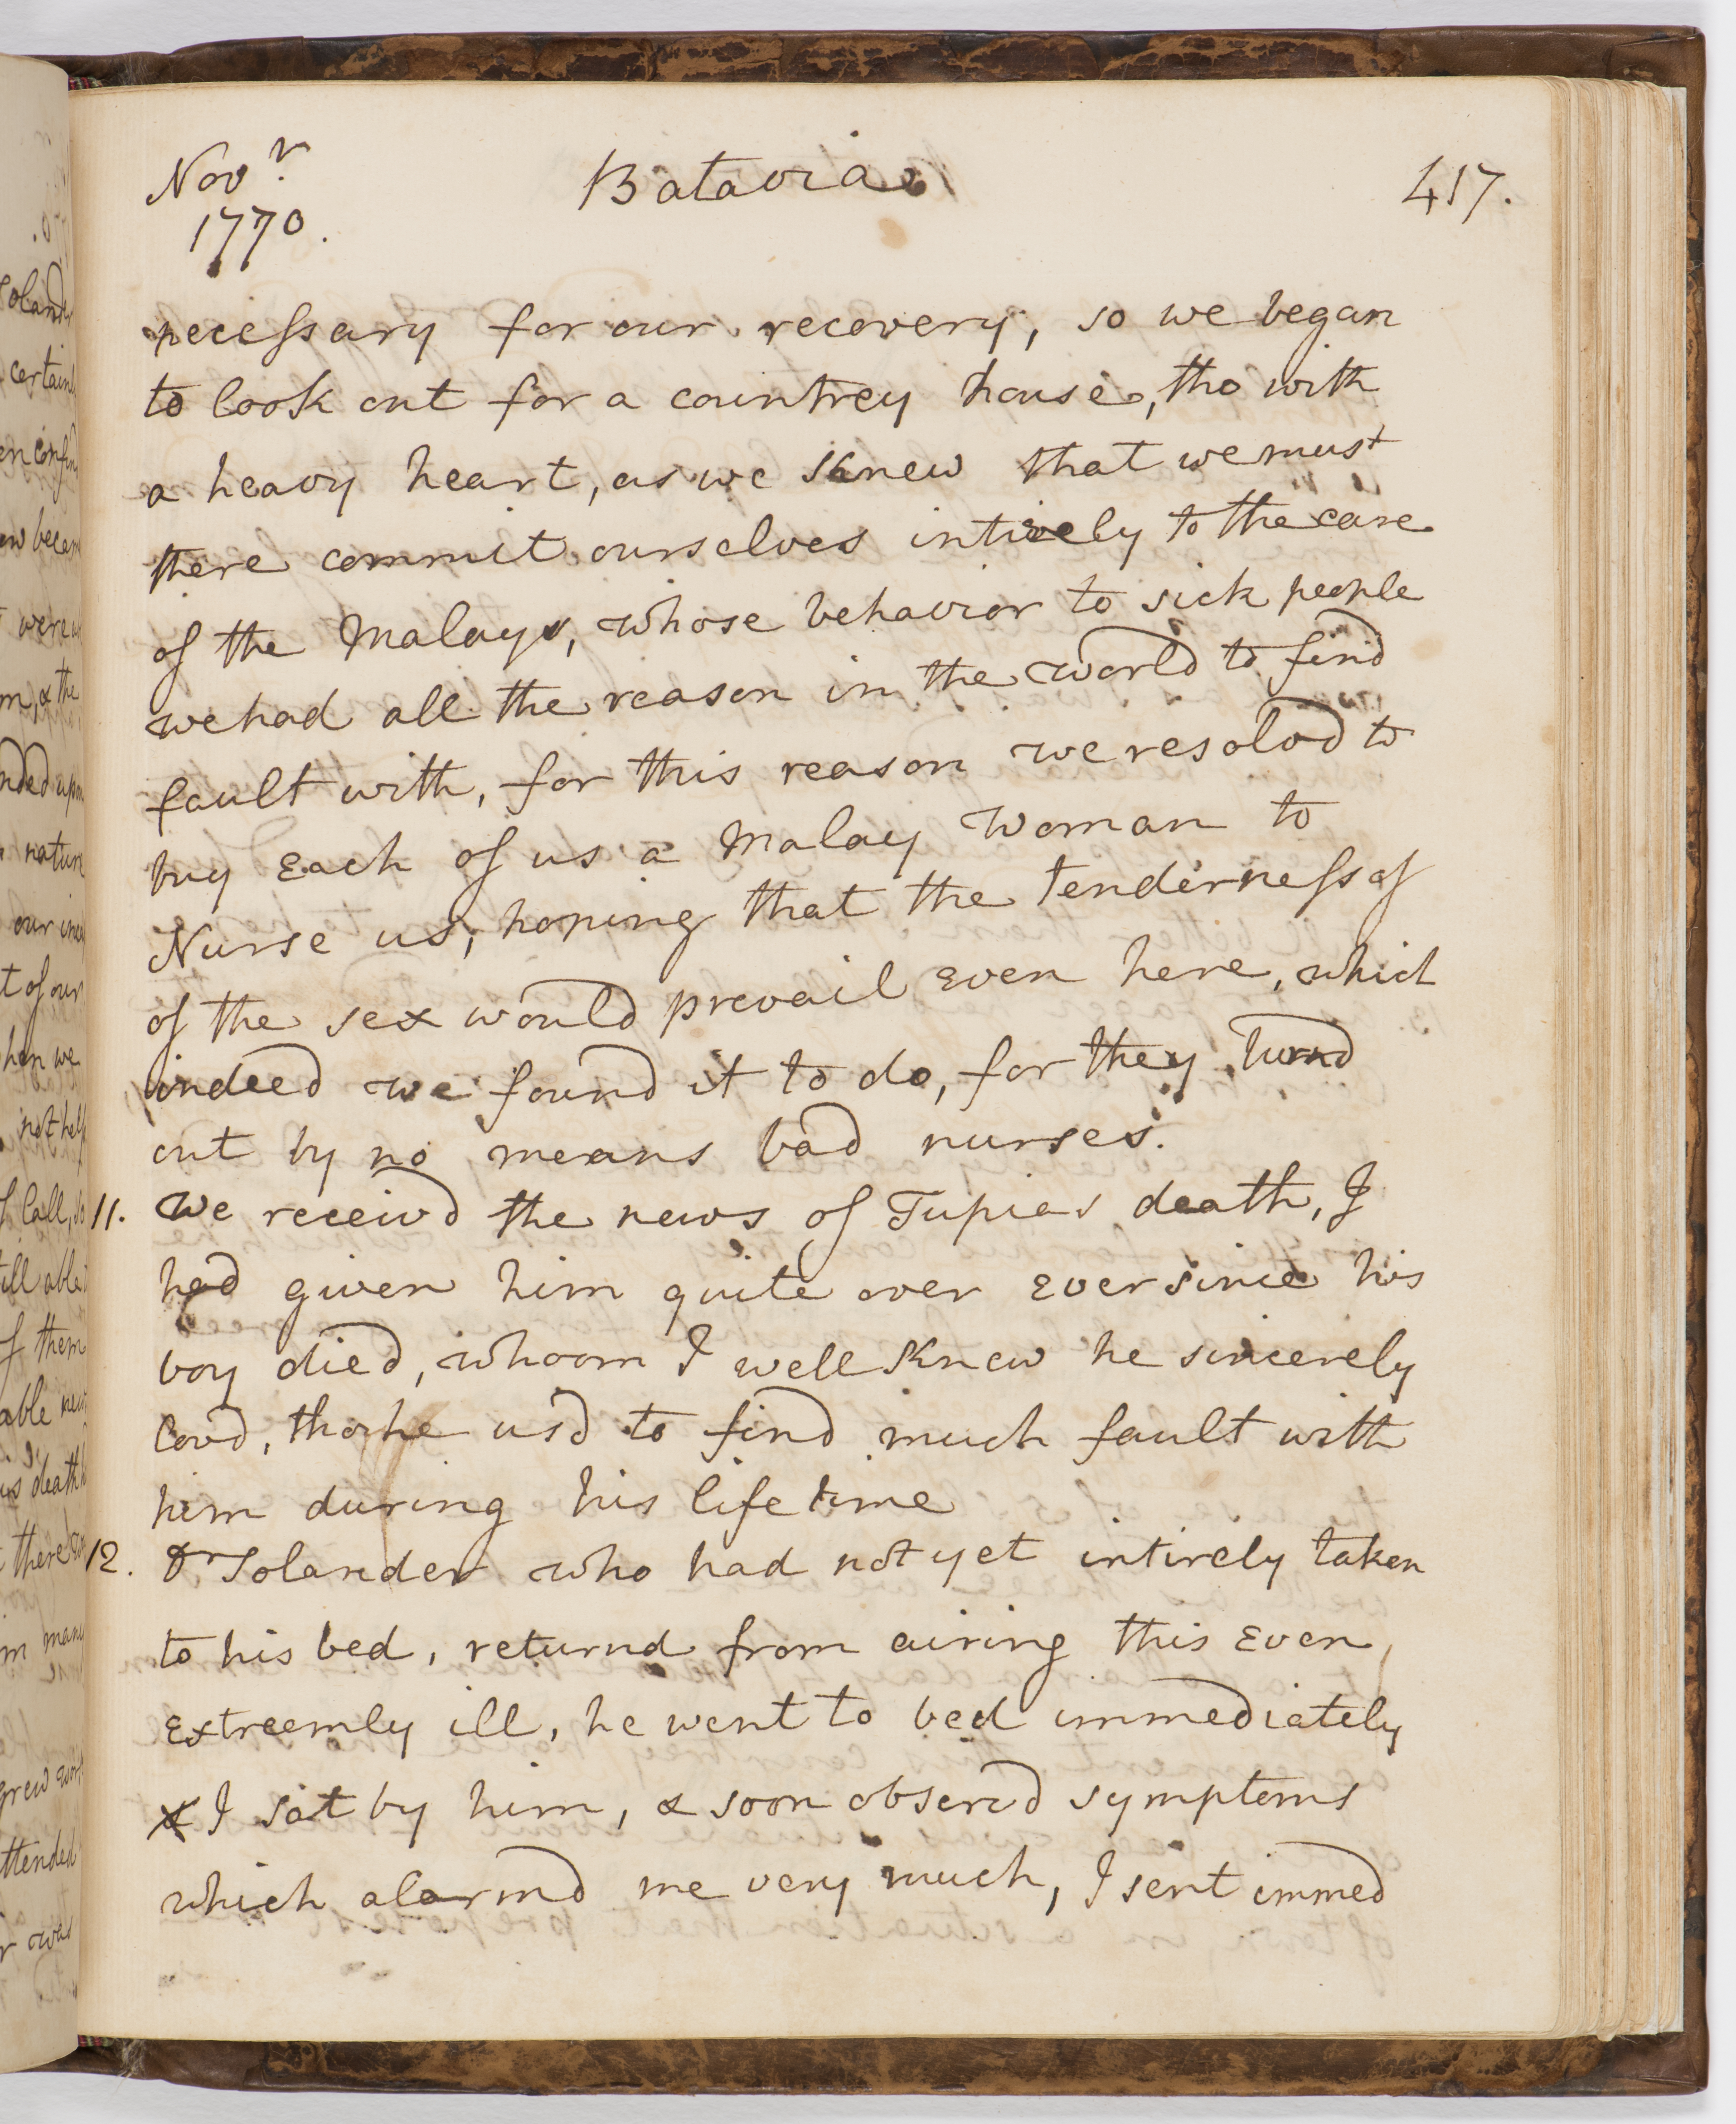 Novr
1770.
Batavia
417.
necessary for our recovery, so we began
to look out for a countrey house, tho with
a heavy heart, as we knew that we must
there commit ourselves intirely to the care
of the Malays, whose behavior to sick people
we had all the reason in the world to find
fault with, for this reason we resolvd to
buy Each of us a Malay Woman to
Nurse us, hoping that the tenderness of
of the sex would prevail Even here, which
indeed we found it to do, for they turnd
out by no means bad nurses.
11. We receivd the news of Tupias death, I
had given him quite over Ever since his
boy died, whoom I well knew he sincerely
lovd, tho he usd to find much fault with
him during his life time
12. Dr Solander who had not yet intirely taken
to his bed, returnd from airing this Even
Extreemly ill, he went to bed immediately
& I sat by him, & soon observd symptoms
which alarmd me very much, I sent immed
Soland
certainl
confin
becam
were
m, & the
nded upon
nature
our
t of our
hen we
not help
call, so
ill able
f them
able
us death
there
m many
grew wors
ttended
r was